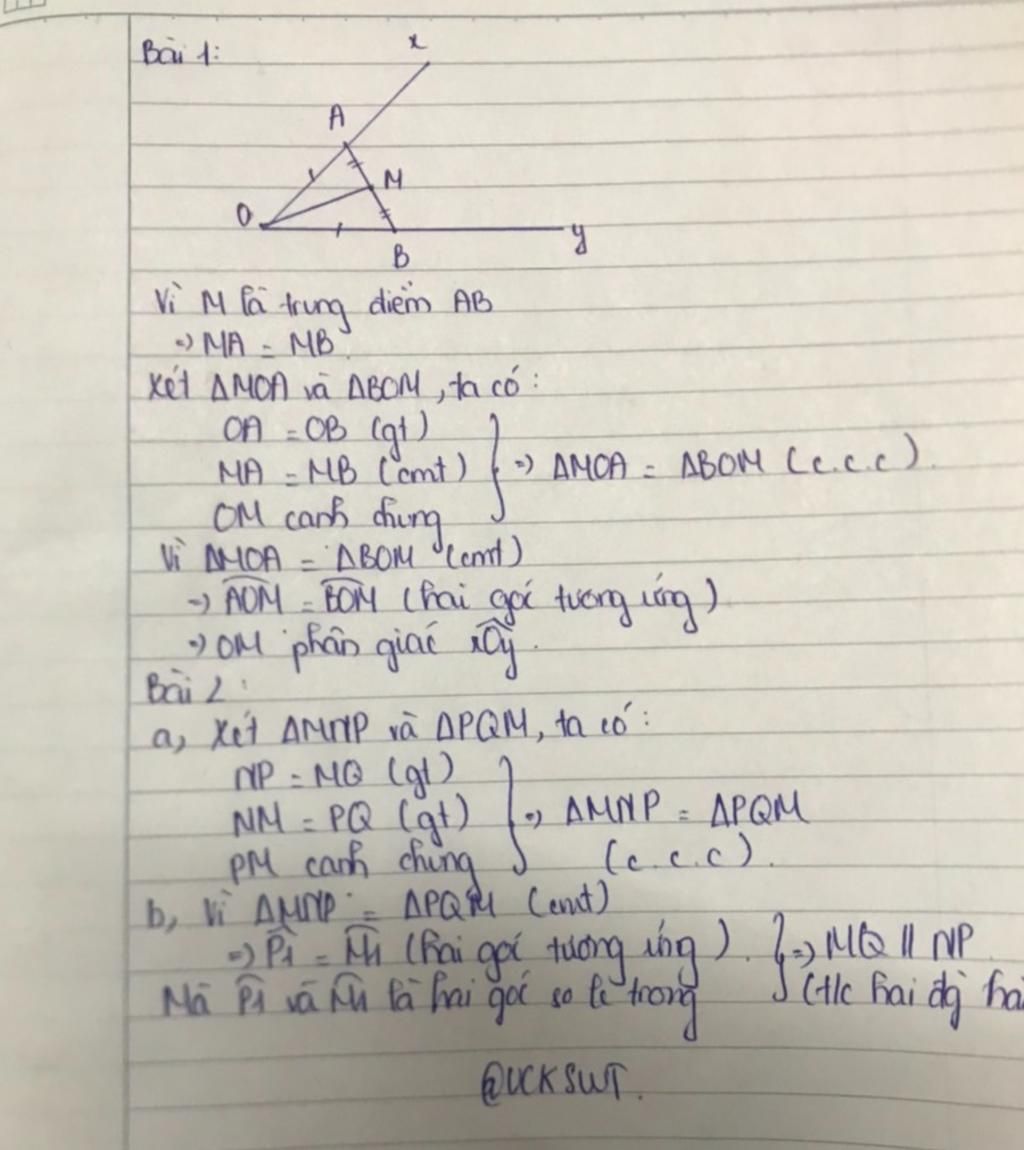 Bài 1:
x
A
M
O
B
y
Vì M là trung điểm AB
=> MA = MB
Xét ΔMOA và ΔBOM, ta có:
OA = OB (gt)
MA = MB (cmt)
=> ΔMOA = ΔBOM (c.c.c).
OM cạnh chung
Vì ΔMOA = ΔBOM (cmt)
=> AOM = BOM (hai góc tương ứng)
=> OM phân giác xOy.
Bài 2:
a, Xét ΔMNP và ΔPQM, ta có:
NP = MQ (gt)
NM = PQ (gt)
=> ΔMNP = ΔPQM
PM cạnh chung
(c.c.c).
b, Vì ΔMNP = ΔPQM (cmt)
=> P1 = M1 (hai góc tương ứng).
=> MQ // NP
Mà P1 và M1 là hai góc so le trong
(t/c hai đg hai
@UCKSWT.